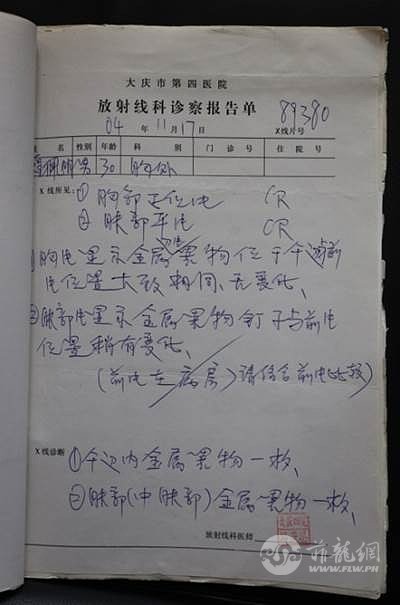 大庆市第四医院
放射线科诊察报告单
04 年 11 月 17 日 X线片号 89380
姓 名 性别 年龄 科 别 门 诊 号 住 院 号
男 30 胸外
X 线所见: ① 胸部正位片 CR
② 腹部平片 CR
① 胸片显示金属异物位于 与前
片位置大致相同、无变化、
② 腹部片显示金属异物钉子与前片
位置稍有变化、
(前片在病房) 请结合前片比较)
X 线诊断 ① 内金属异物一枚、
② 腹部(中腹部)金属异物一枚、
放射线科医师
菲龍網
WWW.FLW.PH